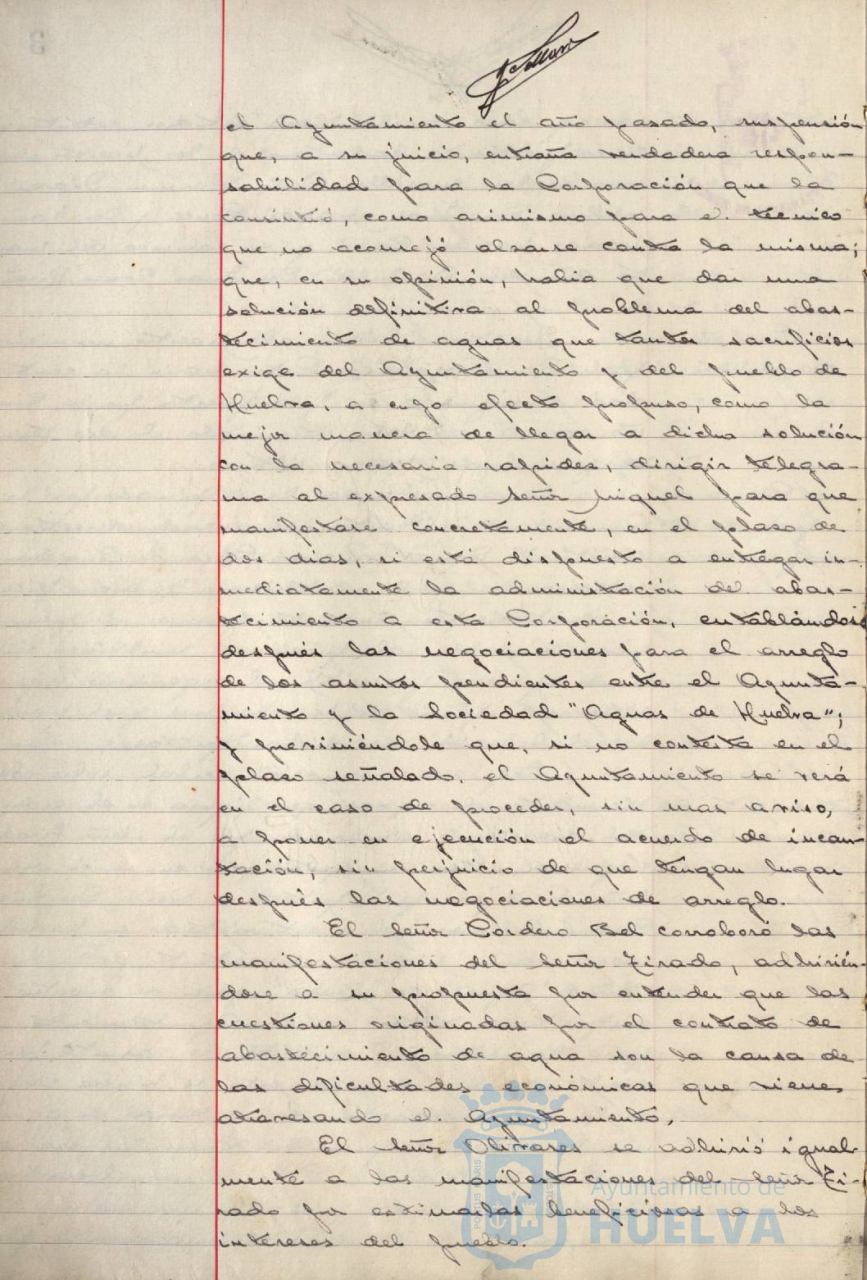 el Ayuntamiento el año pasado, suspensión
que, a su juicio, entraña verdadera respon-
sabilidad para la Corporación que la
consintió, como asimismo para el técnico
que no aconsejó alzarse contra la misma;
que, en su opinión, habia que dar una
solución definitiva al problema del abas-
tecimiento de aguas que tantos sacrificios
exige del Ayuntamiento y del pueblo de
Huelva, a cuyo efecto propuso, como la
mejor manera de llegar a dicha solución
con la necesaria rapidez, dirigir telegra-
ma al expresado señor Miguel para que
manifestáre concretamente, en el plazo de
dos dias, si está dispuesto a entregar in-
mediatamente la administración del abas-
tecimiento a esta Corporación, entablándose
después las negociaciones para el arreglo
de los asuntos pendientes entre el Ayunta-
miento y la Sociedad "Aguas de Huelva";
y previniéndole que, si no contesta en el
plazo señalado, el Ayuntamiento se verá
en el caso de proceder, sin mas aviso,
a poner en ejecución el acuerdo de incau-
tación, sin perjuicio de que tengan lugar
después las negociaciones de arreglo.
El señor Cordero Bel corroboró las
manifestaciones del señor Tirado, adhirién-
dose a su propuesta por entender que las
cuestiones originadas por el contrato de
abastecimiento de agua son la causa de
las dificultades económicas que viene
atravesando el Ayuntamiento.
El señor Olivares se adhirió igual-
mente a las manifestaciones del señor Ti-
rado por estimarlas beneficiosas a los
intereses del pueblo.
Ayuntamiento de
HUELVA